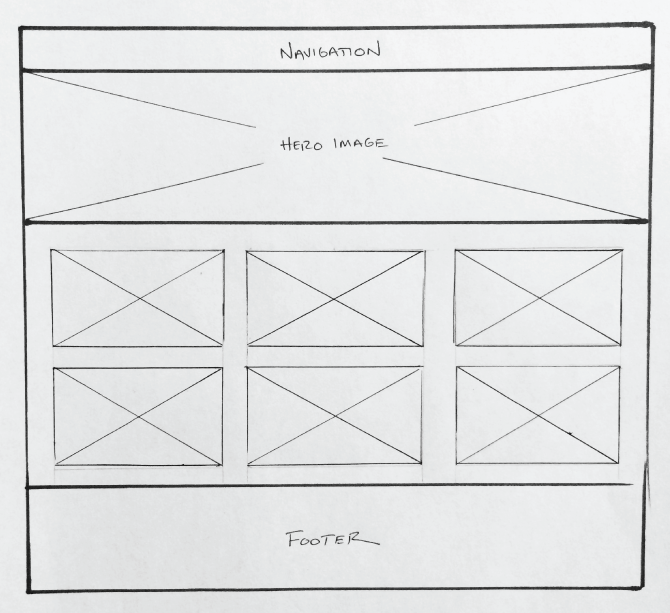 NAVIGATION
HERO IMAGE
FOOTER